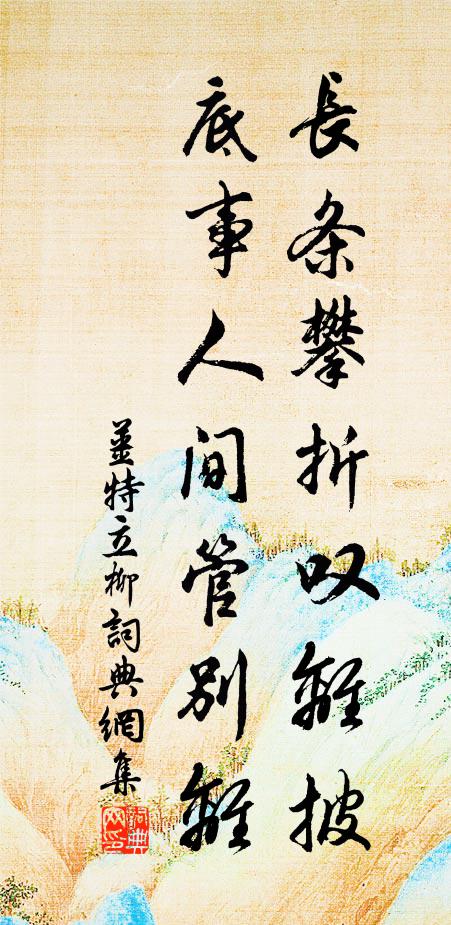 長条攀折叹離披
底事人间管别離
姜特立柳詞典網集
詞典网印